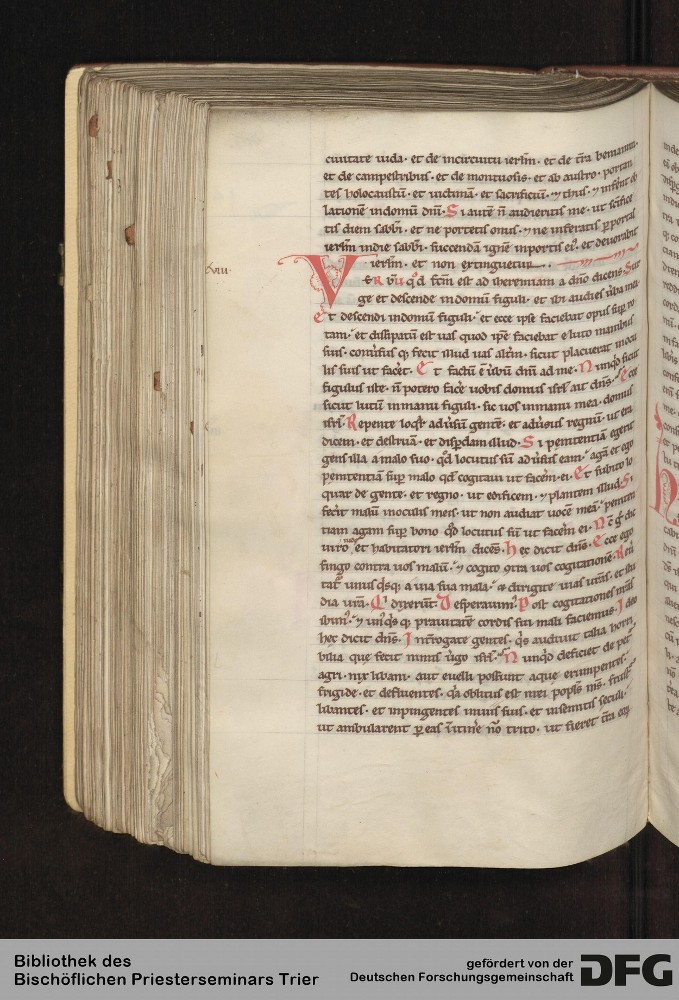 ciuitate iuda · et de incircuitu ierl̅m · et de t̅ra beniamin ·
et de campestribus · et de montuosis · et ab austro · portan
tes holocaustū · et uictimā · et sacrificiū · ⁊ thus · ⁊ inferēt ob
lationē in domū dn̅i · Si autē n̅ audieritis me · ut scīfice
tis diem sabb̅i · et ne portetis onus · ⁊ ne inferatis ꝑ portas
ierl̅m in die sabb̅i · succendā ignē in portis ei᷒ · et deuorabit
ierl̅m · et non extinguetur ·
xviii ·
VERBŪ qd̅ fc̅m est ad iheremiam a dn̅o dicens · Sur
ge et descende in domū figuli · et ibi audies u̅ba mea ·
Et descendi in domū figuli · et ecce ipse faciebat opus sup̱ ro
tam · et dissipatū est uas quod ip̅e faciebat e luto manibus
suis · conu̅susq; fecit illud uas alt̅m · sicut placuerat in ocu
lis suis ut facer̅et · Et factū ē u̅bū dn̅i ad me · Nunqd̅ sicut
figulus iste · n̅ potero fac̅e uobis domus isrl̅ ait dn̅s · Ecce
sicut lutū in manu figuli · sic uos in manu mea · domus
isrl̅ · Repente loqr̅ adu̅sū gentē · et adu̅sus regnū · ut era
dicem · et destruā · et disp̱dam illud · Si penitentiā egerit
gens illa a malo suo · qd̅ locutus sū adu̅sus eam · agā et ego
penitentiā sup̱ malo qd̅ cogitaui ut facerē ei · Et subito lo
quar de gente · et regno · ut edificem · ⁊ plantem illud · Si
fecerit malū in oculis meis · ut non audiat uocē meā · peniten
tiam agam sup̱ bono qd̅ locutus sū ut facerē ei · Nc̅ g̊ dic
uiro iuda et habitatori ierl̅m dicēs · Hec dicit dn̅s · Ecce ego
fingo contra uos malū · ⁊ cogito ꝯtra uos cogitationē · Reu̅
tat̅ unusqsq; a uia sua mala · et dirigite uias ur̅as · et stu
dia ur̅a · Qi dixerūt · Desperauim᷒ · Post cogitationes nr̅as
ibim᷒ · ⁊ unqsq; prauitatē cordis sui mali faciemus · Ideo
hec dicit dn̅s · Int̅rogate gentes · qs audiuit talia horri
bilia que fecit nimis u̅go isrl̅ · Nunqd̅ deficiet de pet̅
agri · nix libani · aut euelli possunt aque erumpentes ·
frigide · et defluentes · qa oblitus est mei popl̅s m̅s · frustra
libantes · et inpingentes in uiis suis · et in semitis seculi ·
ut ambularent p̱ eas in itine̅ no̅ trito · ut fieret t̅ra eoꝝ
Bibliothek des
Bischöflichen Priesterseminars Trier
gefördert von der
Deutschen Forschungsgemeinschaft
DFG